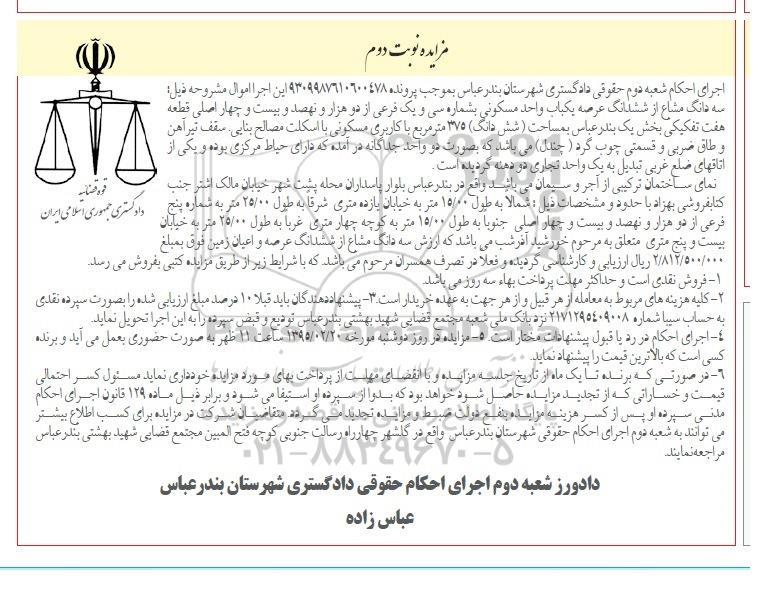 مزایده نوبت دوم
اجرای احکام شعبه دوم حقوقی دادگستری شهرستان بندرعباس بموجب پرونده ۹۳۰۹۹۸۷۶۱۰۶۰۰۴۷۸ این اجرا اموال مشروحه ذیل؛
سه دانگ مشاع از ششدانگ عرصه یکباب واحد مسکونی بشماره سی و یک فرعی از دو هزار و نهصد و بیست و چهار اصلی قطعه
هفت تفکیکی بخش یک بندرعباس بمساحت ( شش دانگ) ۳۷۵ مترمربع با کاربری مسکونی با اسکلت مصالح بنایی، سقف تیرآهن
و طاق ضربی و قسمتی چوب گرد ( جندل) می باشد که بصورت دو واحد جداگانه در آمده که دارای حیاط مرکزی بوده و یکی از
اتاقهای ضلع غربی تبدیل به یک واحد تجاری دو دهنه گردیده است .
نمای ساختمان ترکیبی از آجر و سیمان می باشد واقع در بندرعباس بلوار پاسداران محله پشت شهر خیابان مالک اشتر جنب
کتابفروشی بهزاد با حدود و مشخصات ذیل : شمالا به طول ۱۵/۰۰ متر به خیابان یازده متری شرقا به طول ۲۵/۰۰ متر به شماره پنج
فرعی از دو هزار و نهصد و بیست و چهار اصلی جنوبا به طول ۱۵/۰۰ متر به کوچه چهار متری غربا به طول ۲۵/۰۰ متر به خیابان
بیست و پنج متری متعلق به مرحوم خورشید آذرشب می باشد که ارزش سه دانگ مشاع از ششدانگ عرصه و اعیان زمین فوق بمبلغ
۲/۸۱۲/۵۰۰/۰۰۰ ریال ارزیابی و کارشناسی گردیده و فعلاً در تصرف همسران مرحوم می باشد. که با شرایط زیر از طریق مزایده کتبی بفروش می رسد.
۱- فروش نقدی است و حداکثر مهلت پرداخت بهاء سه روز می باشد.
۲- کلیه هزینه های مربوط به معامله از هر قبیل و از هر جهت به عهده خریدار است.۳- پیشنهاددهندگان باید قبلا ۱۰ درصد مبلغ ارزیابی شده را بصورت سپرده نقدی
به حساب سیبا شماره ۲۱۷۱۲۹۵۴۰۹۰۰۸ نزد بانک ملی شعبه مجتمع قضایی شهید بهشتی بندرعباس تودیع و قبض سپرده را به این اجرا تحویل نماید.
۴- اجرای احکام در رد یا قبول پیشنهادات مختار است. ۵- مزایده در روز دوشنبه مورخه ۱۳۹۵/۰۲/۲۰ ساعت ۱۱ ظهر به صورت حضوری بعمل می آید و برنده
کسی است که بالاترین قیمت را پیشنهاد نماید.
۶- در صورتی که برنده تا یک ماه از تاریخ جلسه مزایده و با انقضای مهلت از پرداخت بهای مورد مزایده خودداری نماید مسئول کسر احتمالی
قیمت و خساراتی که از تجدید مزایده حاصل شود خواهد بود که بدوا از سپرده او استیفا می شود و برابر ذیل ماده ۱۲۹ قانون اجرای احکام
مدنی سپرده او پس از کسر هزینه مزایده بنفع دولت ضبط و مزایده تجدید می گردد. متقاضیان شرکت در مزایده برای کسب اطلاع بیشتر
می توانند به شعبه دوم اجرای احکام حقوقی شهرستان بندرعباس واقع در گلشهر چهارراه رسالت جنوبی کوچه فتح المبین مجتمع قضایی شهید بهشتی بندرعباس
مراجعه نمایند.
دادورز شعبه دوم اجرای احکام حقوقی دادگستری شهرستان بندرعباس
عباس زاده
قوه قضائیه
دادگستری جمهوری اسلامی ایران
۰۲۱-۸۸۳۴۹۶۷۰-۵